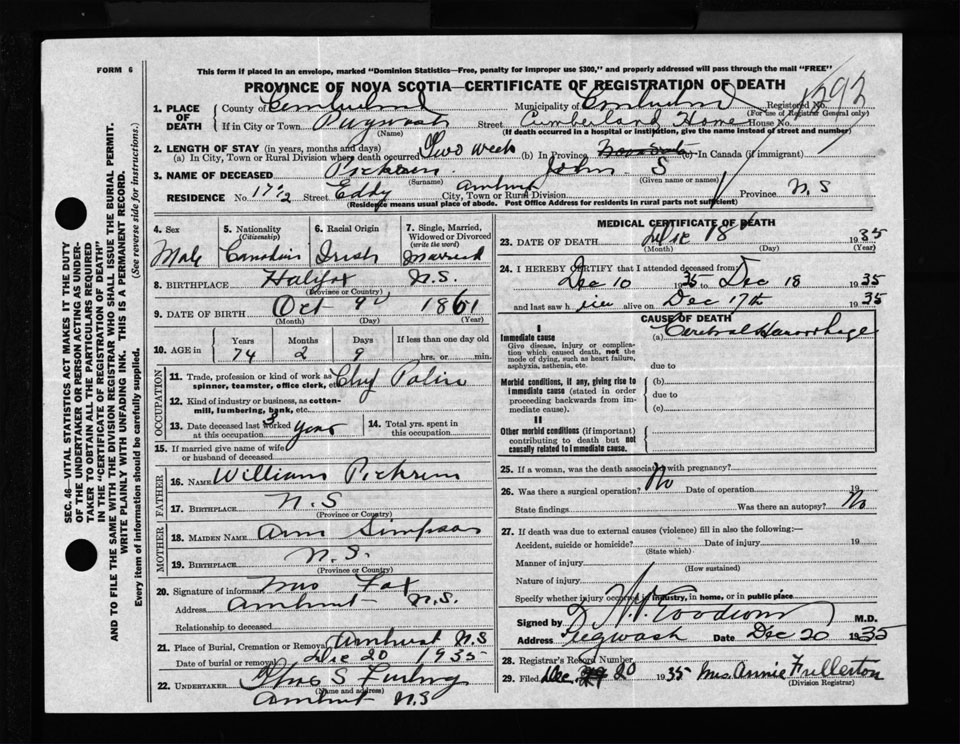 FORM 6
This form if placed in an envelope, marked "Dominion Statistics—Free, penalty for improper use $300," and properly addressed will pass through the mail "FREE"
PROVINCE OF NOVA SCOTIA—CERTIFICATE OF REGISTRATION OF DEATH
1. PLACE OF DEATH County of Cumberland Municipality of Cumberland Registered No.
(For use of Registrar General only)
If in City or Town Pugwash Street Cumberland Home House No.
(Name) (If death occurred in a hospital or institution, give the name instead of street and number)
2. LENGTH OF STAY (in years, months and days)
(a) In City, Town or Rural Division where death occurred Two Weeks (b) In Province Nova Scotia (c) In Canada (if immigrant)
3. NAME OF DECEASED Pickrem John S
(Surname) (Given name or names)
RESIDENCE No. 17½ Street Eddy Amherst City, Town or Rural Division Province N.S
(Residence means usual place of abode. Post Office Address for residents in rural parts not sufficient)
4. Sex 5. Nationality (Citizenship) 6. Racial Origin 7. Single, Married, Widowed or Divorced (write the word)
Male Canadian Irish Married
8. BIRTHPLACE Halifax N.S.
(Province or Country)
9. DATE OF BIRTH Oct 9 1861
(Month) (Day) (Year)
10. AGE in Years Months Days If less than one day old
74 2 9 hrs. or min.
OCCUPATION
11. Trade, profession or kind of work as spinner, teamster, office clerk, etc. Chief Police
12. Kind of industry or business, as cotton-mill, lumbering, bank, etc.
13. Date deceased last worked at this occupation 3 years 14. Total yrs. spent in this occupation
15. If married give name of wife or husband of deceased
FATHER
16. NAME William Pickrem
17. BIRTHPLACE N.S
(Province or Country)
MOTHER
18. MAIDEN NAME Ann Simpson
19. BIRTHPLACE N.S.
(Province or Country)
20. Signature of informant Mrs Fox
Address Amherst N.S.
Relationship to deceased
21. Place of Burial, Cremation or Removal Amherst N.S
Date of burial or removal Dec 20 1935
22. UNDERTAKER S Furlong
(Name and address)
Amherst N.S
MEDICAL CERTIFICATE OF DEATH
23. DATE OF DEATH Dec 18 1935
(Month) (Day) (Year)
24. I HEREBY CERTIFY that I attended deceased from:
Dec 10 1935 to Dec 18 1935
and last saw him alive on Dec 17th 1935
CAUSE OF DEATH
I
Immediate cause (a) Cerebral Hemorrhage
Give disease, injury or complication which caused death, not the mode of dying, such as heart failure, asphyxia, asthenia, etc.
due to
Morbid conditions, if any, giving rise to immediate cause (stated in order proceeding backwards from immediate cause).
(b)
due to
(c)
II
Other morbid conditions (if important) contributing to death but not causally related to immediate cause.
25. If a woman, was the death associated with pregnancy?
26. Was there a surgical operation? No Date of operation 19
State findings Was there an autopsy? No
27. If death was due to external causes (violence) fill in also the following:—
Accident, suicide or homicide? Date of injury 19
(State which)
Manner of injury
(How sustained)
Nature of injury
Specify whether injury occurred in industry, in home, or in public place
Signed by M.D.
Address Pugwash Date Dec 20 1935
28. Registrar's Record Number
29. Filed Dec. 20 1935 Mrs. Annie Fullerton
(Division Registrar)
SEC. 46—VITAL STATISTICS ACT MAKES IT THE DUTY
OF THE UNDERTAKER OR PERSON ACTING AS UNDERTAKER
TO OBTAIN ALL THE PARTICULARS REQUIRED
IN THE "CERTIFICATE OF REGISTRATION OF DEATH"
AND TO FILE THE SAME WITH THE DIVISION REGISTRAR WHO SHALL ISSUE THE BURIAL PERMIT.
WRITE PLAINLY WITH UNFADING INK. THIS IS A PERMANENT RECORD.
Every item of information should be carefully supplied. (See reverse side for instructions.)